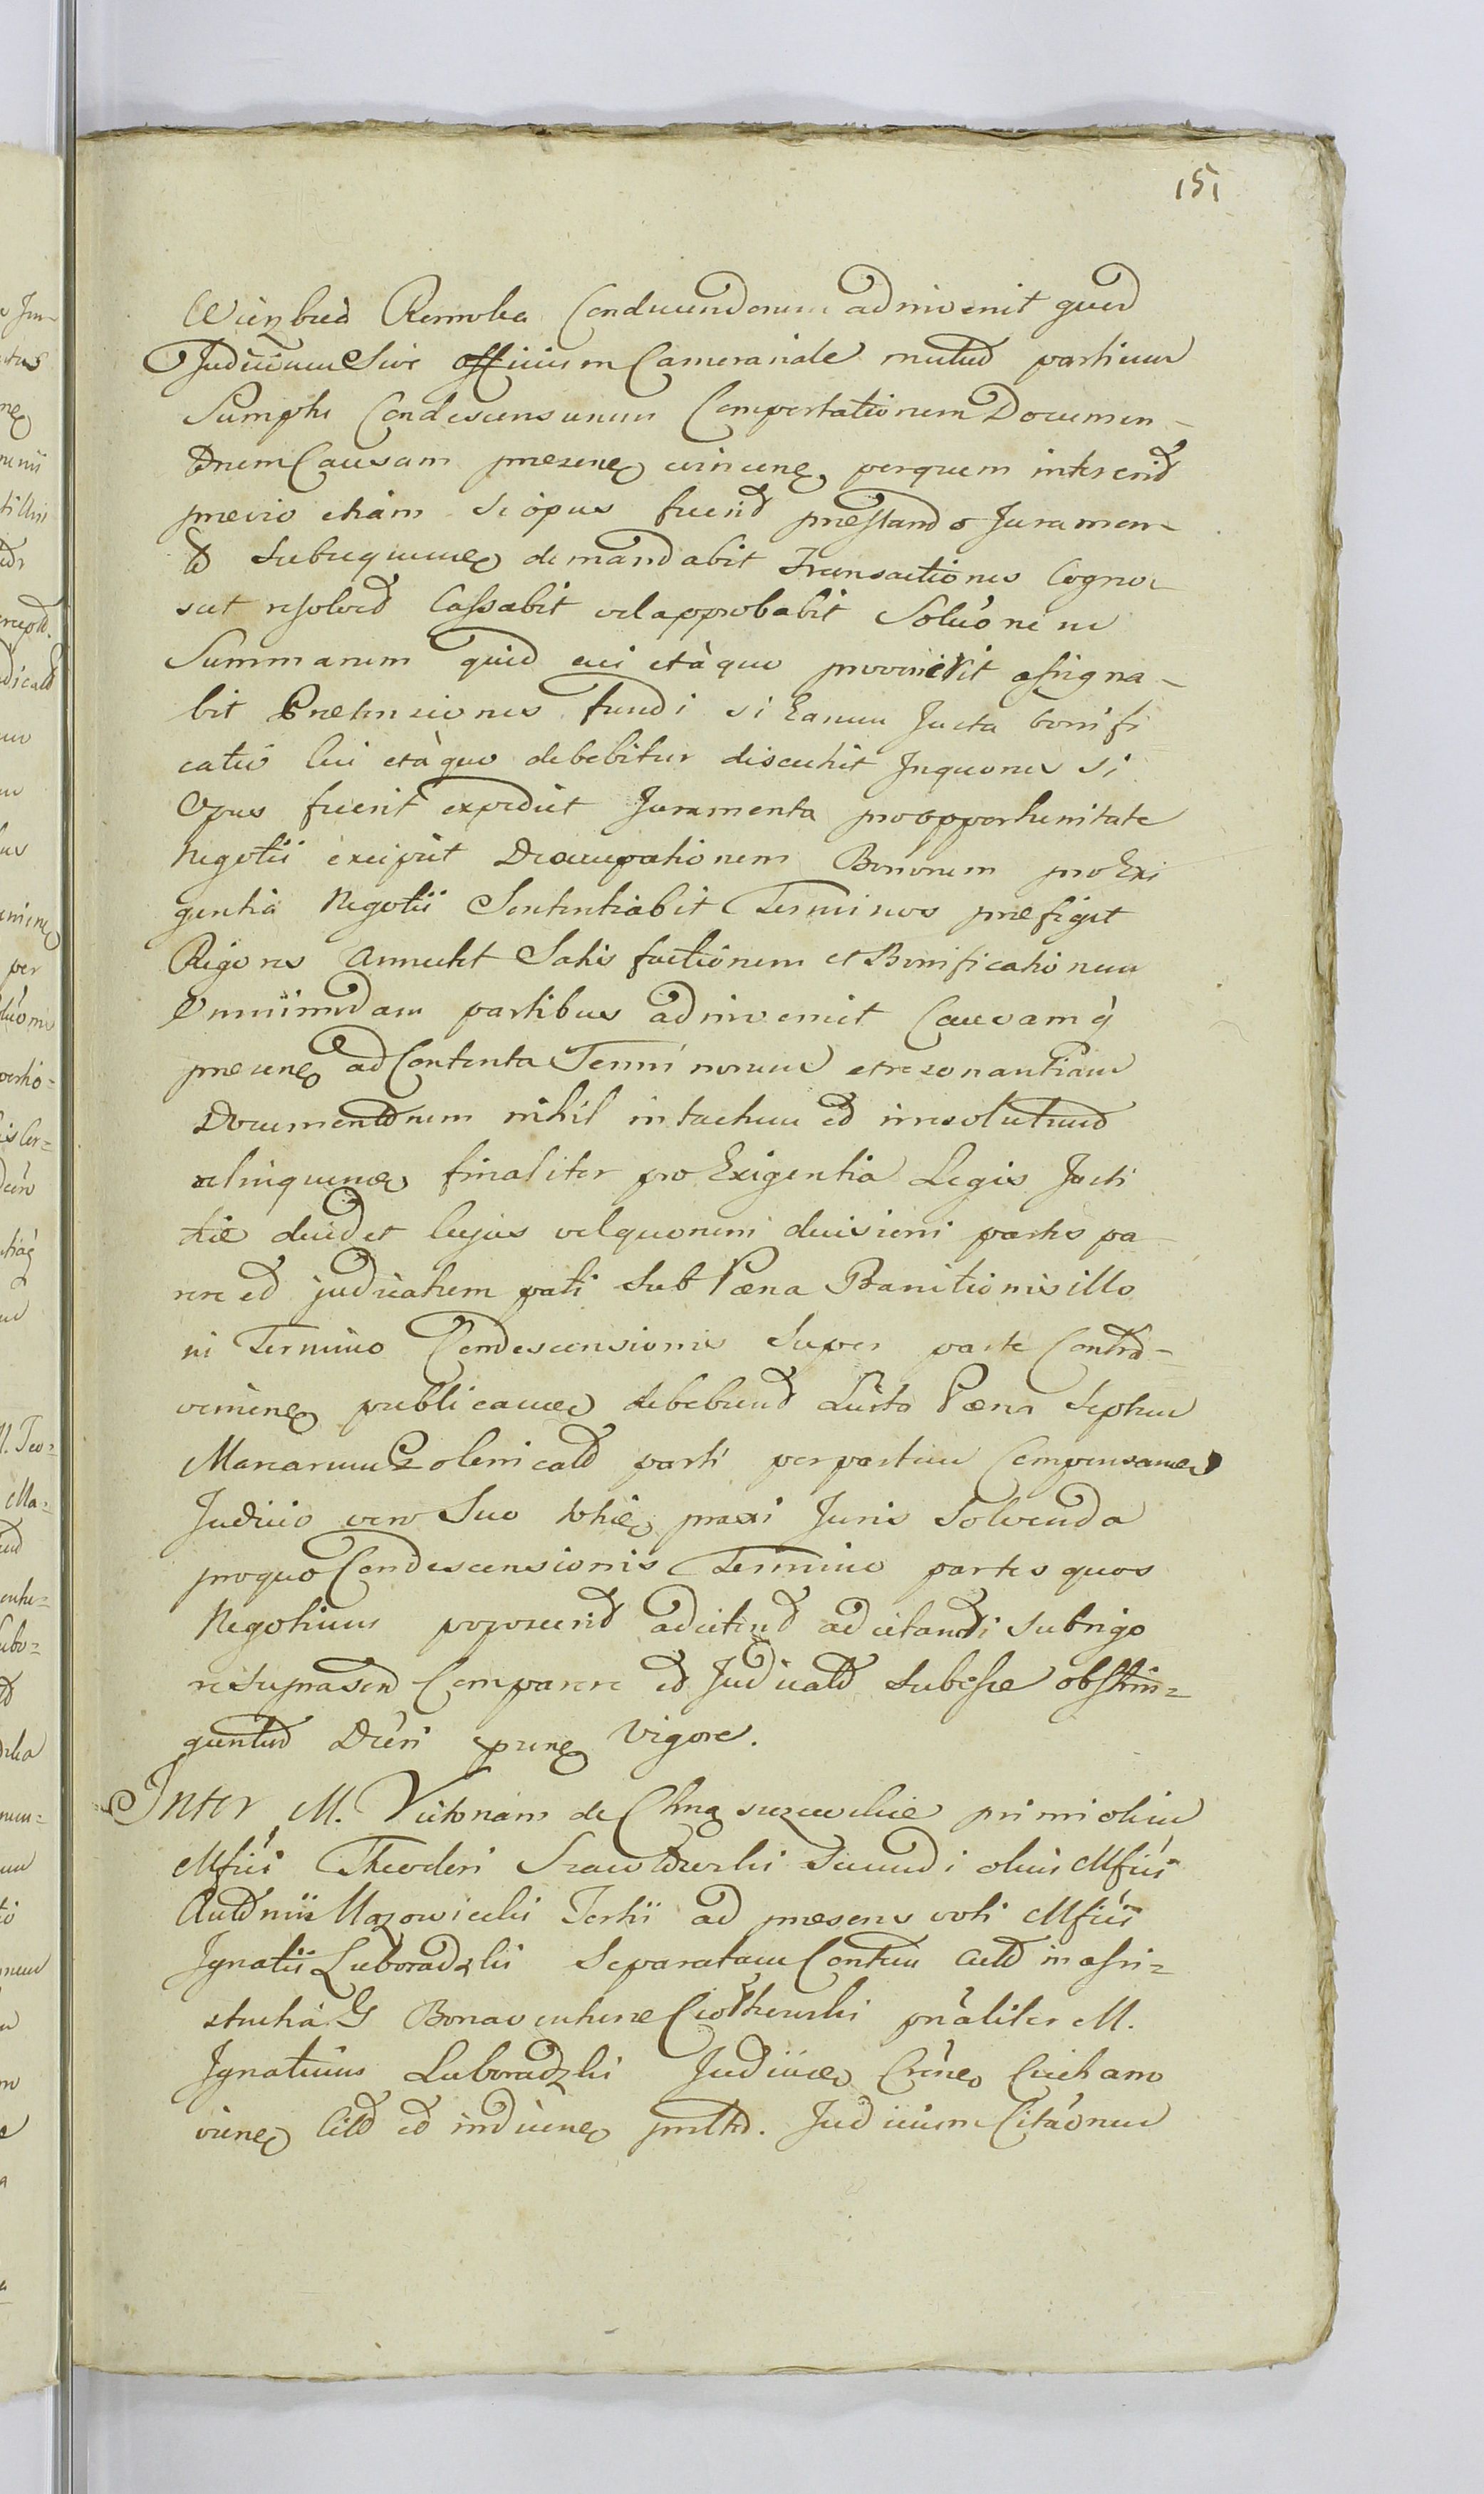 151
Wierzbica Remota Conducendorum adinvenit quod
Judicium Sive officium Camerariale mutuo partium
Sumptu Condescensurum Comportationem Documen-
torum Causam presen evincen perquem intererit
previo etiam si opus fuerit prestando Juramen-
to subsequen demandabit Transactiones Cogno
scet resolvet Cassabit vel approbabit Solucionem
Summarum quid cui et à quo provenerit assigna-
bit Pretensiones fundi si Earum Jucta bonifi
catio Cui et à quo debebitur discutiet Inquones si
Opus fuerit expediet Juramenta pro opportunitate
Negotii excipiet Deoccupationem Bonorum pro Exi
gentia Negotii Sententiabit Terminos prefiget
Rigores Annectet Satisfactionem et Bonificationem
Omnimodam partibus adinveniet Causamq
presen ad Contenta Terminorum et resonantiam
Documentorum nihil intactum et irresolutum
relinquen finaliter pro Exigentia Legis Justi
tie decidet Cujus vel quorum decisioni partes pa
rere et judicatum pati sub Pœna Banitionis illo
in Termino Condescensionis super parte Contra-
venien publican debebunt Pœna Septem
Marcarum Polonicali parti per partem Compensan
Judicio vero Suo toties praxi Juris Solvenda
pro quo Condescensionis Termino partes quos
Negotium poposcerit adcitent adcitandi sub rigo
re suprascrip Comparere et Judicato Subesse obstrin=
guntur Decri presen Vigore.
Inter M. Victoriam de primi olim
Mfici Theodori secundi olim Mfici
Antonii Mazowiecki Tertii ad presens voti Mfici
Ignatii Luboradzki Separatam Contem acto in assi=
stentia G Bonaventure Ciotkowski pnaliter M.
Ignatium Luboradzki Judicium
Citto et inducen prltd. Judicium Citaonem